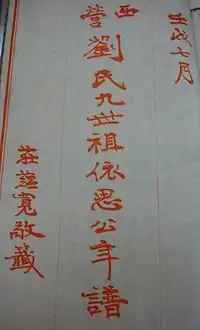 壬戌七月
西營劉氏九世祖依思公年譜
莊蘊寬敬藏